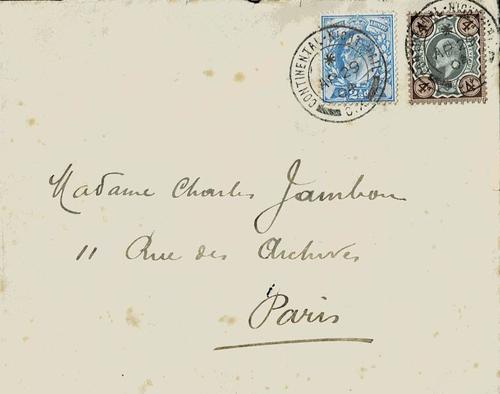 CONTINENTAL-NIGHT-MAIL
AP 29
02
4D 4D
Madame Charles Jambon
11 Rue des Archives
Paris